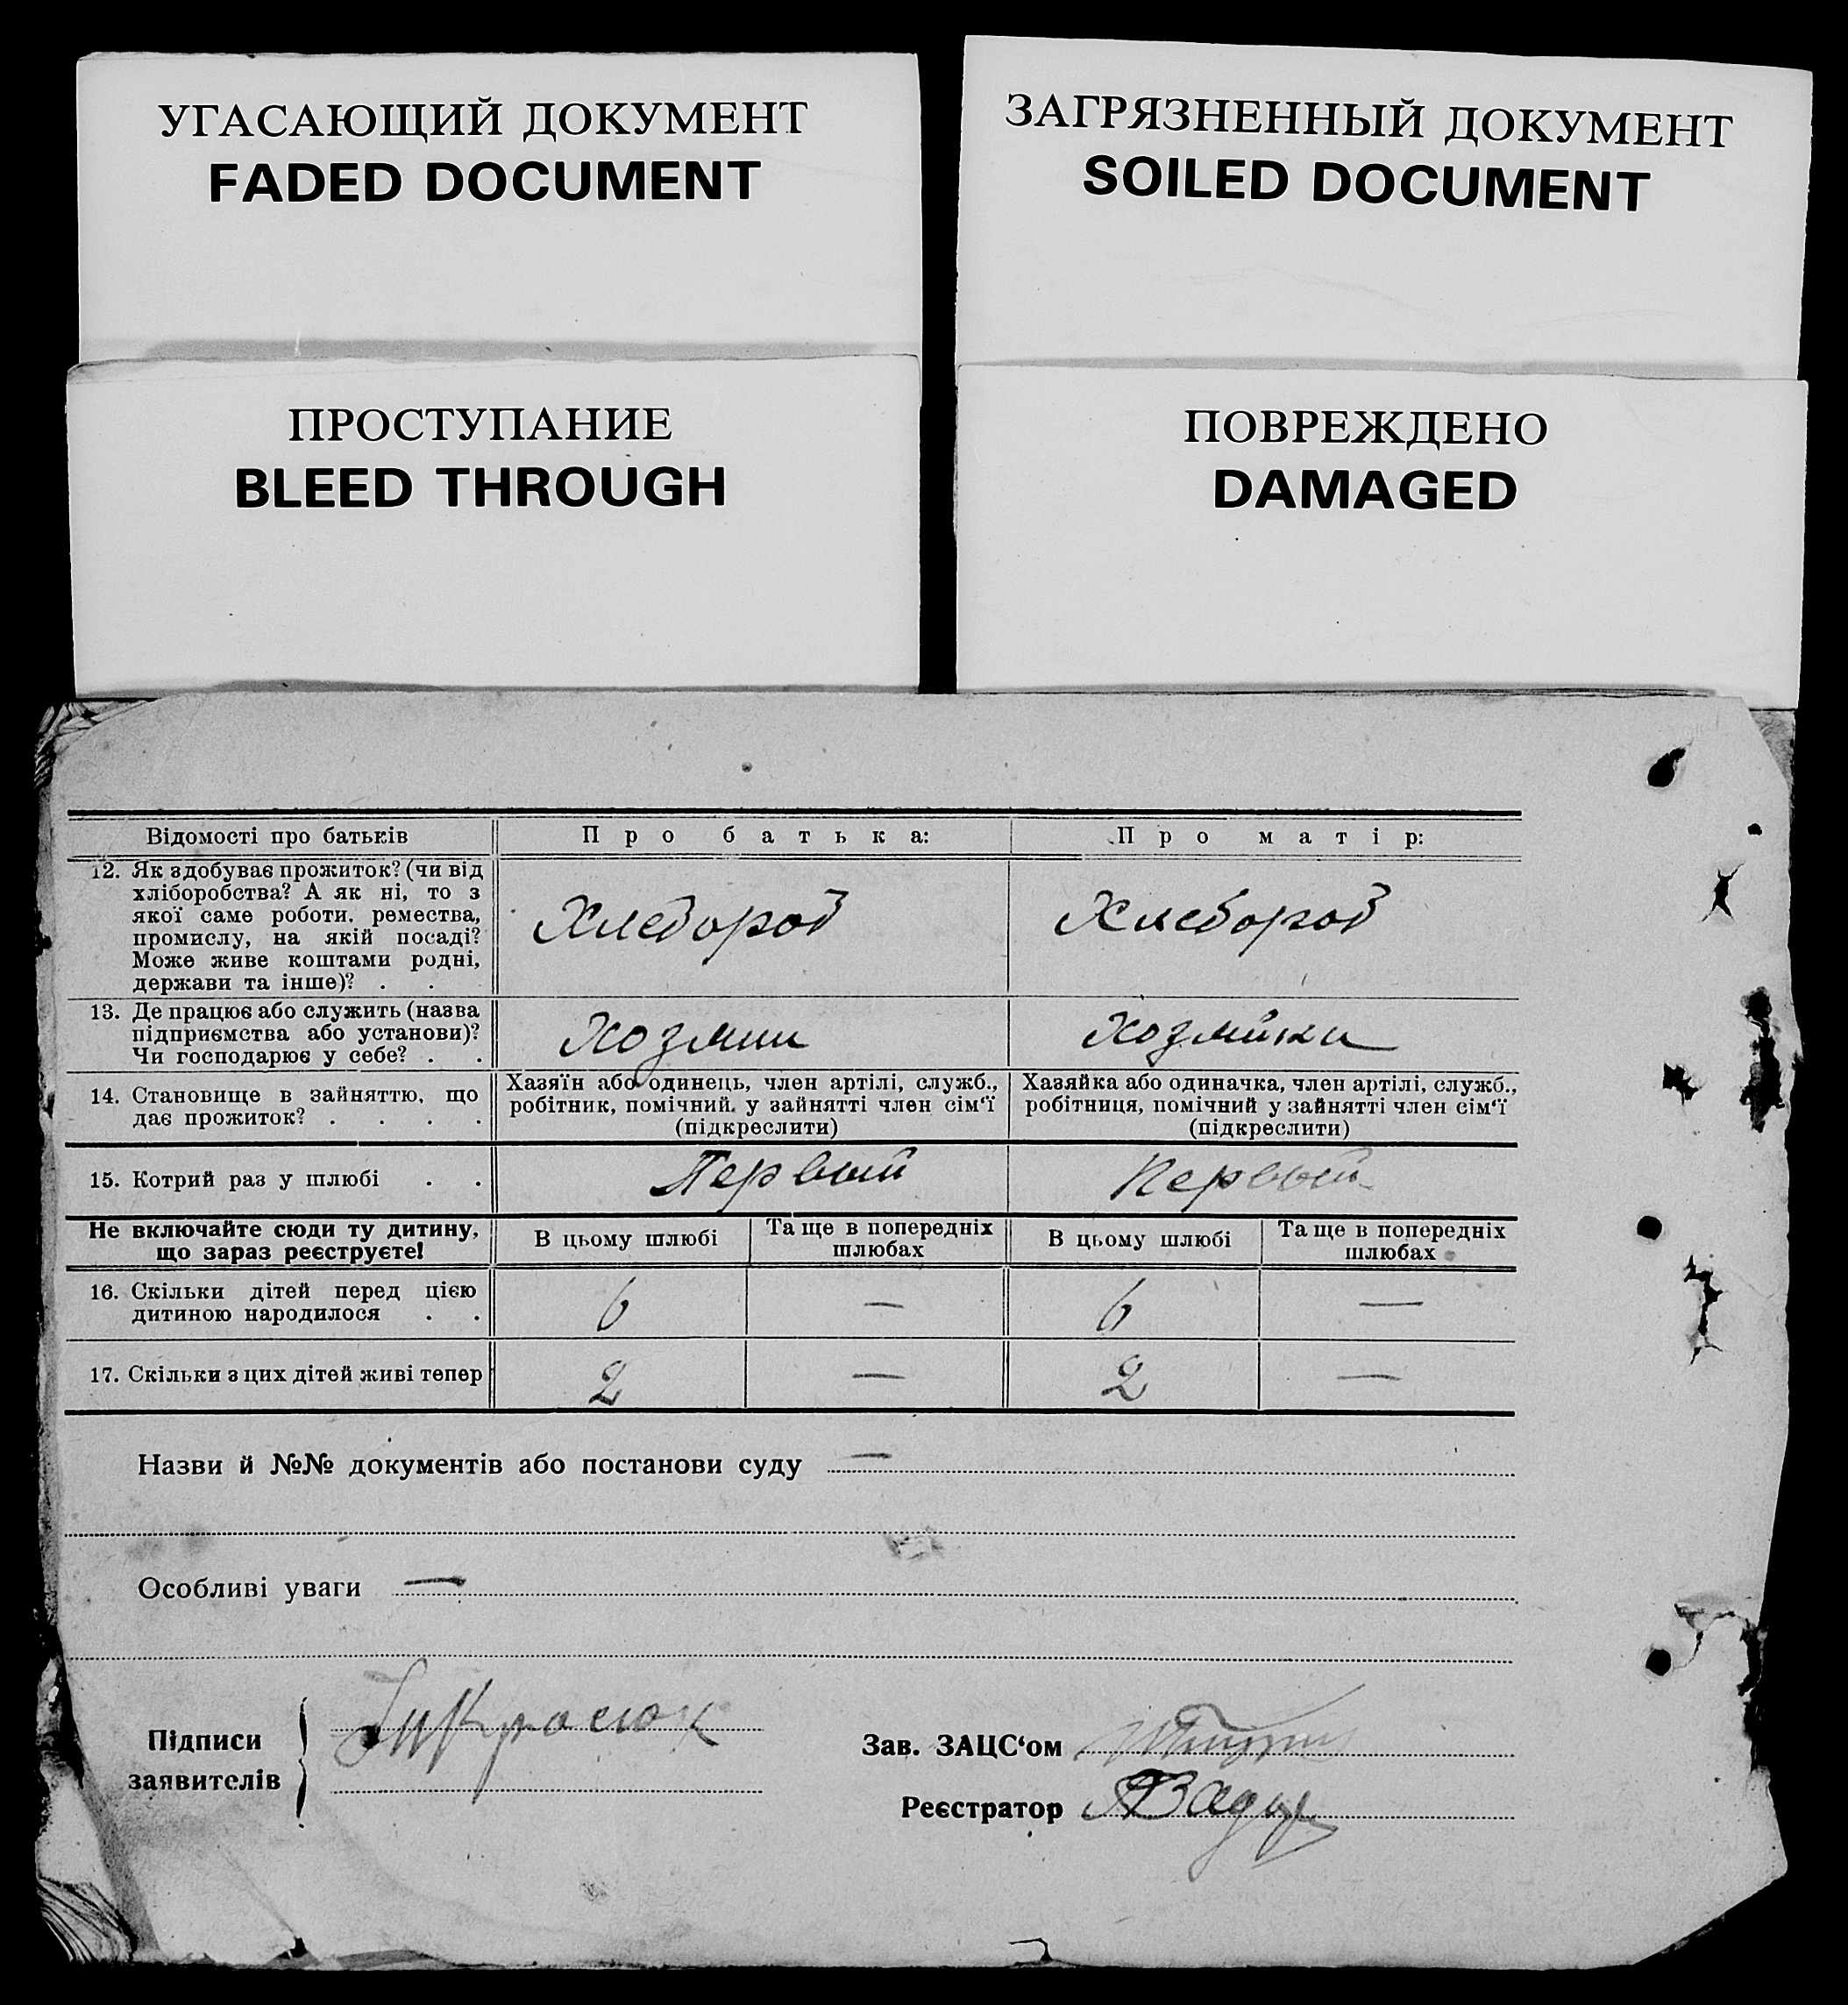 УГАСАЮЩИЙ ДОКУМЕНТ
FADED DOCUMENT
ЗАГРЯЗНЕННЫЙ ДОКУМЕНТ
SOILED DOCUMENT
ПРОСТУПАНИЕ
BLEED THROUGH
ПОВРЕЖДЕНО
DAMAGED
Відомості про батьків
Про батька:
Про матір:
12. Як здобуває прожиток? (чи від
хліборобства? А як ні, то з
якої саме роботи, ремества,
промислу, на якій посаді?
Може живе коштами родні,
держави та інше)? . .
Хлебороб
Хлебороб
13. Де працює або служить (назва
підприємства або установи)?
Чи господарює у себе? . .
Хозяин
Хозяйка
14. Становище в зайняттю, що
дає прожиток? . . . .
Хазяїн або одинець, член артілі, служб.,
робітник, помічний. у зайнятті член сім‘ї
(підкреслити)
Хазяйка або одиначка, член артілі, служб.,
робітниця, помічний у зайнятті член сім‘ї
(підкреслити)
15. Котрий раз у шлюбі . .
Первый
Первый
Не включайте сюди ту дитину,
що зараз реєструєте!
В цьому шлюбі
Та ще в попередніх
шлюбах
В цьому шлюбі
Та ще в попередніх
шлюбах
16. Скільки дітей перед цією
дитиною народилося . .
6
—
6
—
17. Скільки з цих дітей живі тепер
2
—
2
—
Назви й №№ документів або постанови суду —
Особливі уваги —
Підписи
заявителів
Зав. ЗАЦС‘ом
Реєстратор